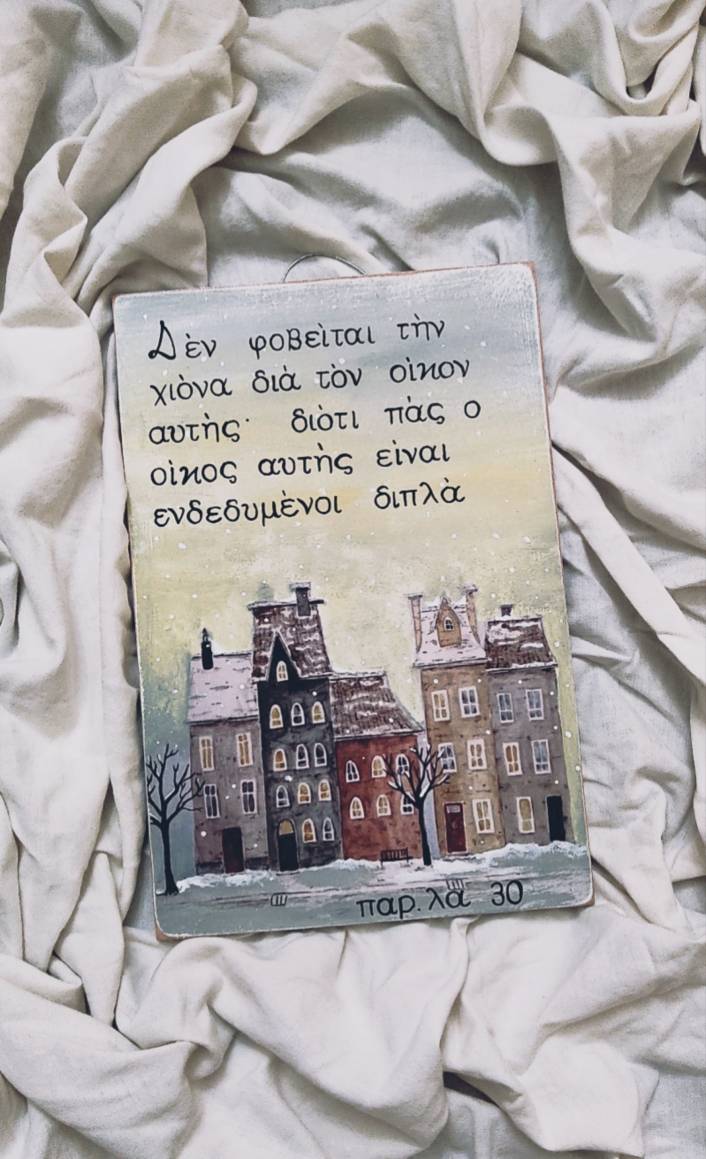 Δὲν φοβεὶται τὴν
χιὸνα διὰ τὸν οὶκον
αυτὴς· διὸτι πὰς ο
οὶκος αυτὴς εὶναι
ενδεδυμὲνοι διπλὰ
παρ. λα 30